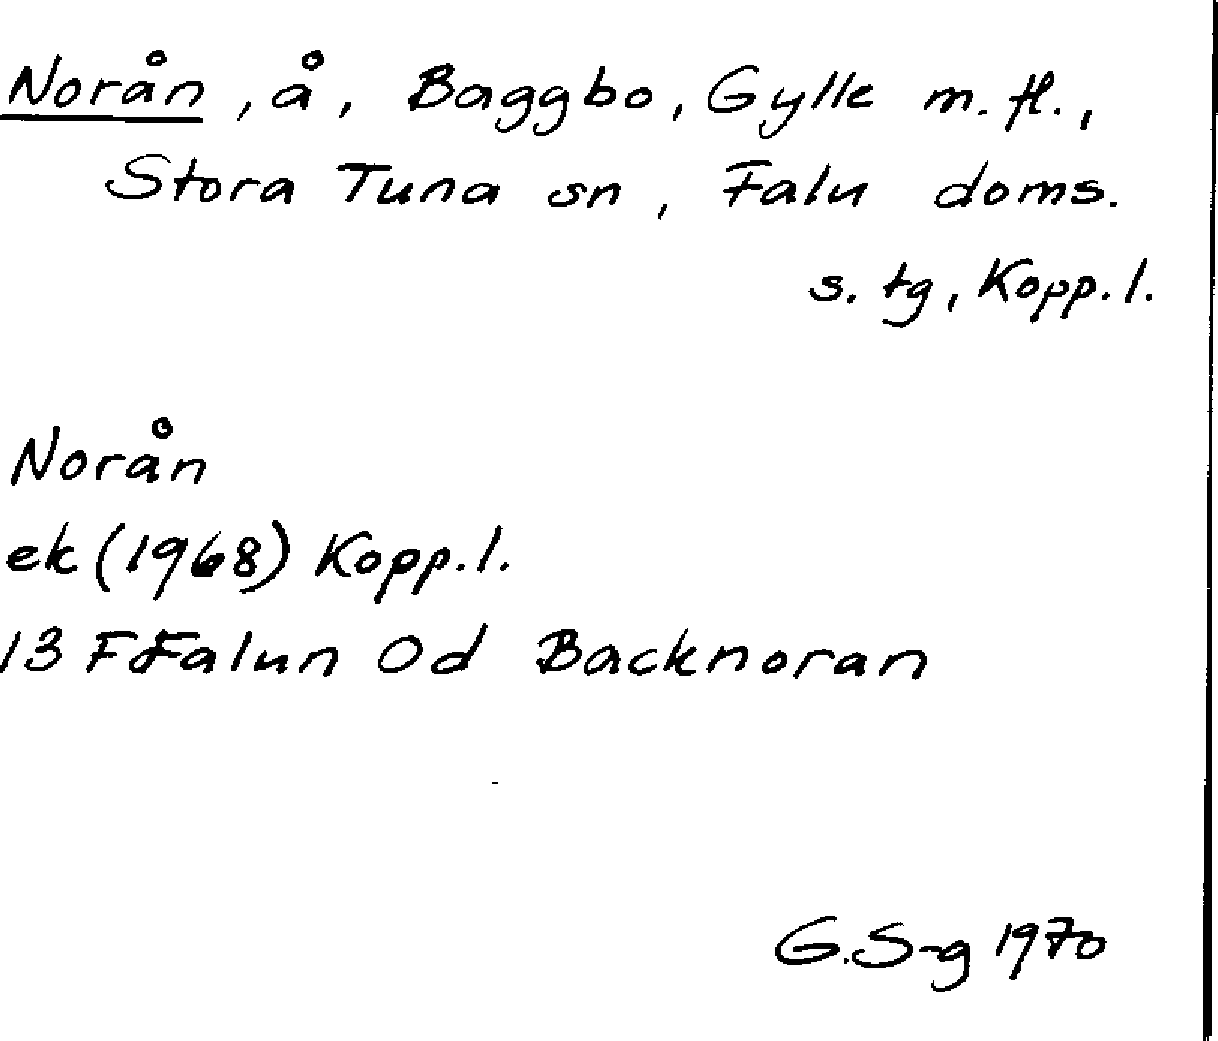 Norån, å, Baggbo, Gylle m. fl.,
Stora Tuna sn, Falu doms.
s. tg, Kopp. l.
Norån
ek (1968) Kopp. l.
13 F Falun Od Backnoran
G. S-g 1970